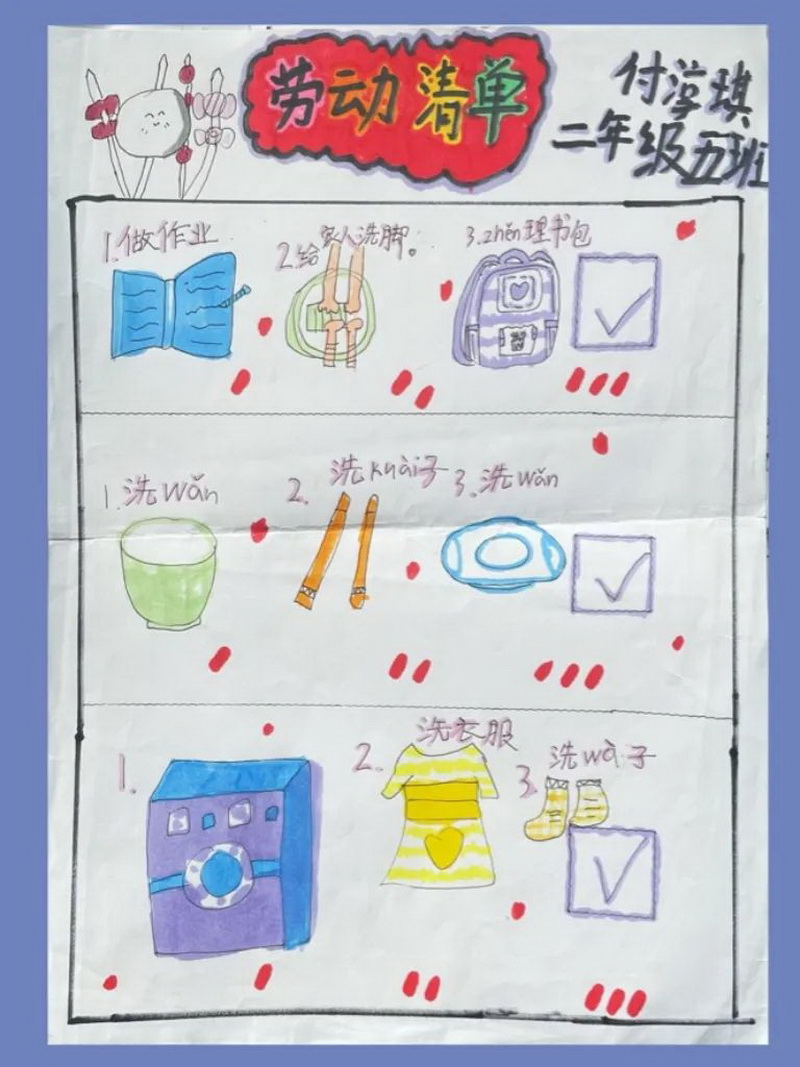 劳动清单
付淳琪
二年级五班
1.做作业
2.给家人洗脚。
3.zhěn理书包
1.洗wǎn
2.洗kuài子
3.洗wǎn
1.
2.洗衣服
3.洗wà子